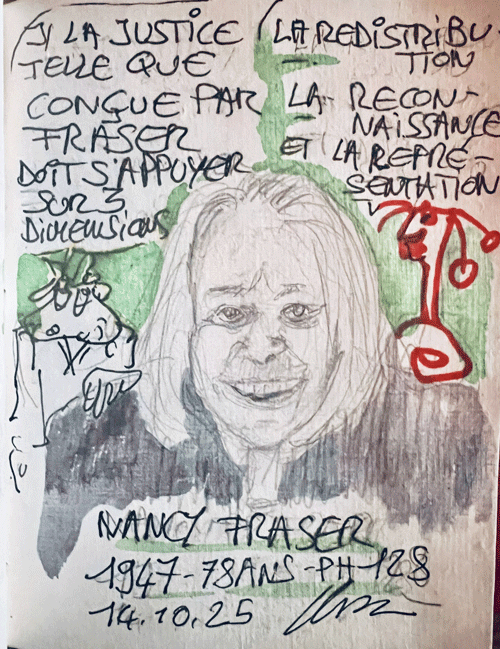 SI LA JUSTICE
TELLE QUE
CONÇUE PAR
FRASER
DOIT S'APPUYER
SUR 3
DIMENSIONS
LA REDISTRIBU-
TION
LA RECON-
NAISSANCE
ET LA REPRÉ-
SENTATION
NANCY FRASER
1947-78ANS-PH128
14.10.25